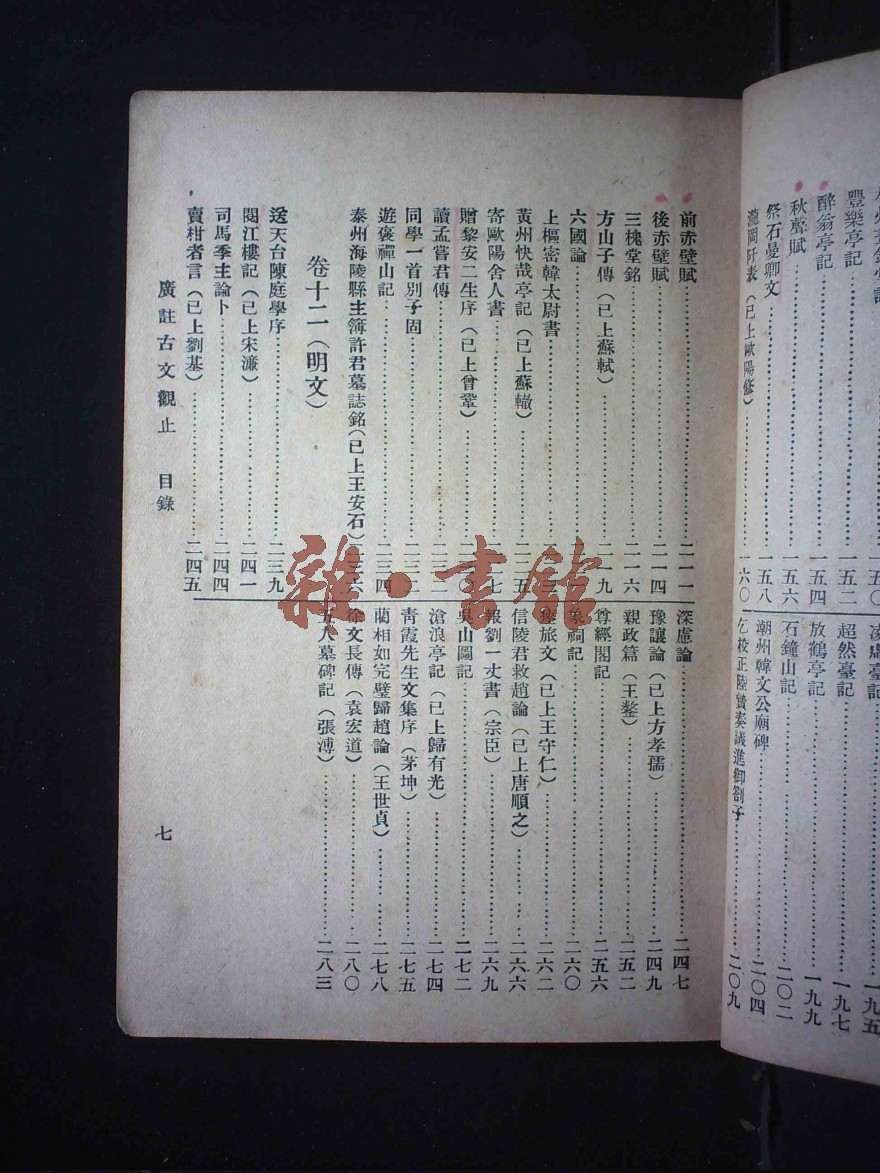 豐樂亭記……一五二
醉翁亭記……一五四
秋聲賦……一五六
祭石曼卿文……一五八
瀧岡阡表（已上歐陽修）……一六〇
凌虛臺記……一九五
超然臺記……一九七
放鶴亭記……一九九
石鐘山記……二〇二
潮州韓文公廟碑……二〇四
乞校正陸贄奏議進御劄子……二〇九
前赤壁賦……二一一
後赤壁賦……二一四
三槐堂銘……二一六
方山子傳（已上蘇軾）……二一九
六國論……
上樞密韓太尉書……
黃州快哉亭記（已上蘇轍）……二二五
寄歐陽舍人書……七
贈黎安二生序（已上曾鞏）……〇
讀孟嘗君傳……二三二
同學一首別子固……二三
遊褒禪山記……二三四
泰州海陵縣主簿許君墓誌銘（已上王安石）二三六
卷十二（明文）
送天台陳庭學序……二三九
閱江樓記（已上宋濂）……二四一
司馬季主論卜……二四四
賣柑者言（已上劉基）……二四五
深慮論……二四七
豫讓論（已上方孝孺）……二四九
親政篇（王鏊）……二五二
尊經閣記……二五六
象祠記……二六〇
瘞旅文（已上王守仁）……二六二
信陵君救趙論（已上唐順之）……二六六
報劉一丈書（宗臣）……二六九
吳山圖記……二七二
滄浪亭記（已上歸有光）……二七四
青霞先生文集序（茅坤）……二七五
藺相如完璧歸趙論（王世貞）……二七八
徐文長傳（袁宏道）……二八〇
五人墓碑記（張溥）……二八三
廣註古文觀止　目錄
七
雜·書館